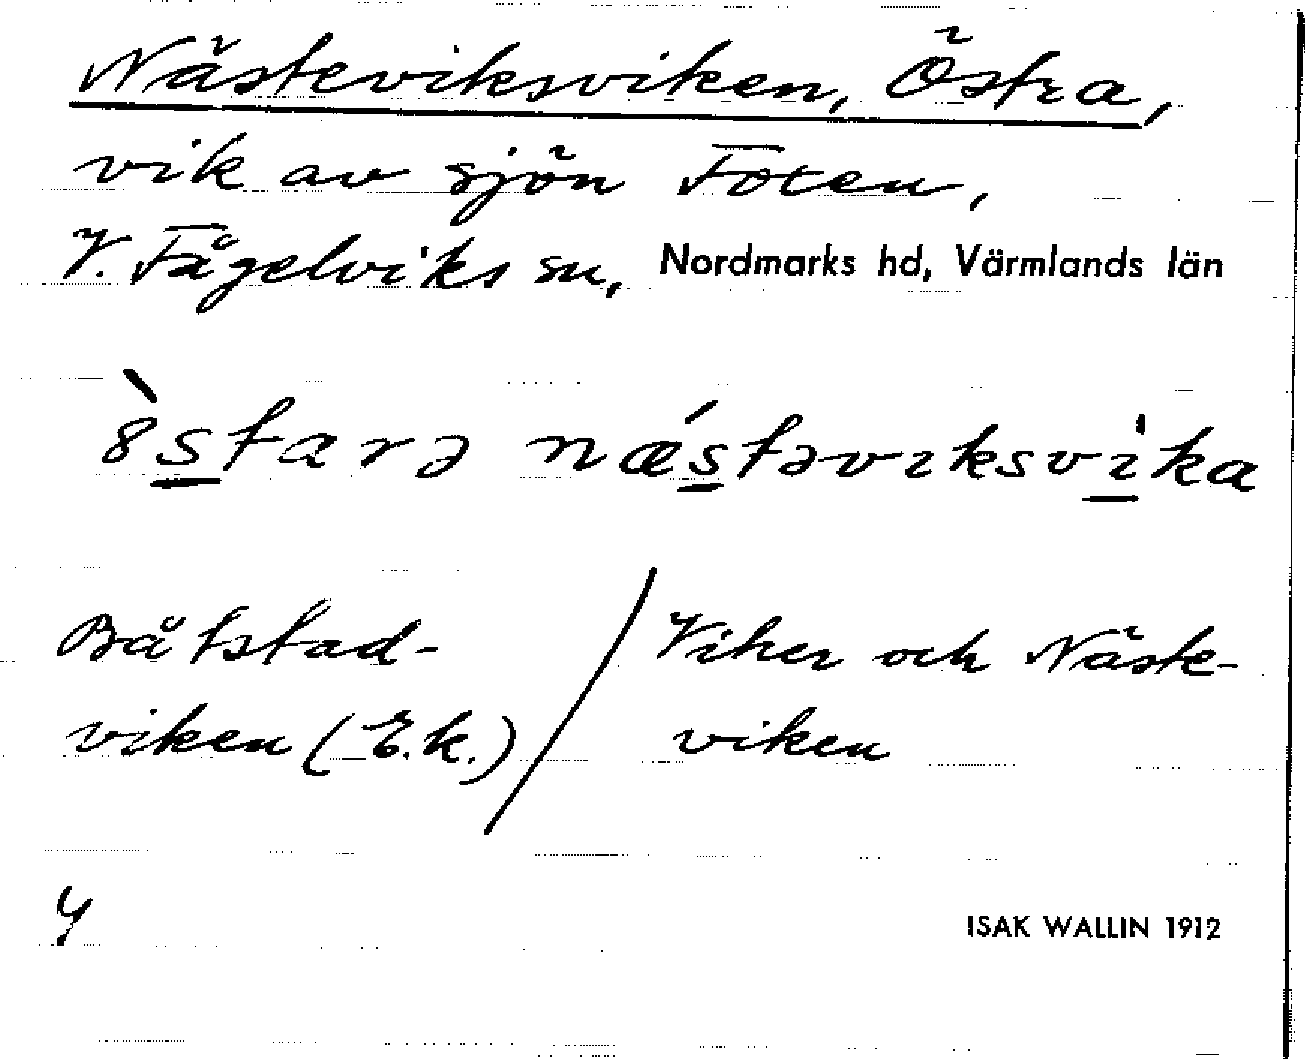 Nästeviksviken, Östra,
vik av sjön Foxen,
V. Fågelviks sn, Nordmarks hd, Värmlands län
8̀s̲tarə nǽs̲təvıksvi̲ka
Båtstad- / Viker och Näste-
viken (E.k.) viken
4
ISAK WALLIN 1912